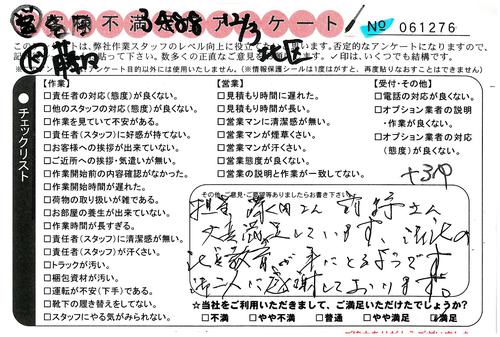 お客様不満足アンケート
No 061276
12/3
北区
このアンケートは、弊社作業スタッフのレベル向上に役立て
います。否定的なアンケートになりますので、
貼って下さい。数多くの正直なご意見を
います。✓印は、いくつでも結構です。
アンケート目的以外には使用いたしません。(※情報保護シールは1度はがすと、再度貼りなおすことはできません)
チェックリスト
【作業】
□責任者の対応(態度)が良くない。
□他のスタッフの対応(態度)が良くない。
□作業を見ていて不安がある。
□責任者(スタッフ)に好感が持てない。
□お客様への挨拶が出来ていない。
□ご近所への挨拶・気遣いが無い。
□作業開始前の内容確認がなかった。
□作業開始時間が遅れた。
□荷物の取り扱いが雑である。
□お部屋の養生が出来ていない。
□作業時間が長すぎる。
□責任者(スタッフ)に清潔感が無い。
□責任者(スタッフ)が汗くさい。
□トラックが汚い。
□梱包資材が汚い。
□運転が不安(下手)である。
□靴下の履き替えをしてない。
□スタッフにやる気がみられない。
【営業】
□見積もり時間が遅れた。
□見積もり時間が長い。
□営業マンに清潔感が無い。
□営業マンが煙草くさい。
□営業マンが汗くさい。
□営業態度が良くない。
□営業の説明と作業が一致してない。
【受付・その他】
□電話の対応が良くない。
□オプション業者の説明
・作業が良くない。
□オプション業者の対応
(態度)が良くない。
その他、ご意見・ご要望等ありましたらお書き下さい。
大変満足しています。
教育が手にとるようです
に感謝しております。
☆当社をご利用いただきまして、ご満足いただけたでしょうか?
□不満 □やや不満 □普通 □やや満足 ☑満足